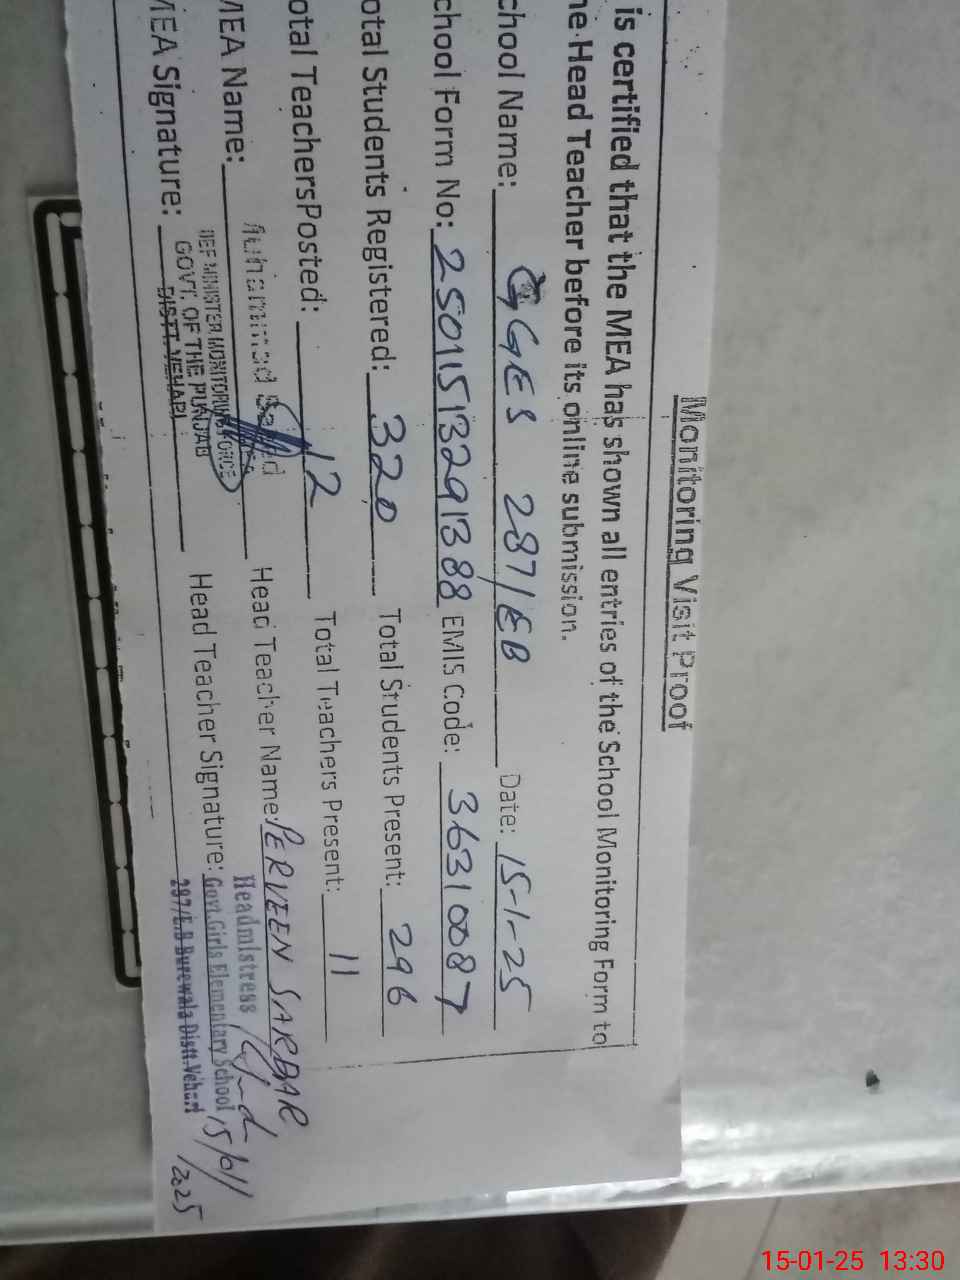 Monitoring Visit Proof
is certified that the MEA has shown all entries of the School Monitoring Form to
he Head Teacher before its online submission.
chool Name: GGES 287/EB Date: 15-1-25
chool Form No: 25011513291388 EMIS Code: 36310087
otal Students Registered: 320 Total Students Present: 296
otal TeachersPosted: 12 Total Teachers Present: 11
MEA Name: Muhammad Head Teacher Name: PERVEEN SARDAR
MEA Signature: Head Teacher Signature:
MINISTER MONITORING FORCE
GOVT. OF THE PUNJAB
DISTT. VEHARI
Headmistress
Govt.Girls Elementary School
287/E.B Burewala Distt.Vehari
15/01/2025
15-01-25 13:30